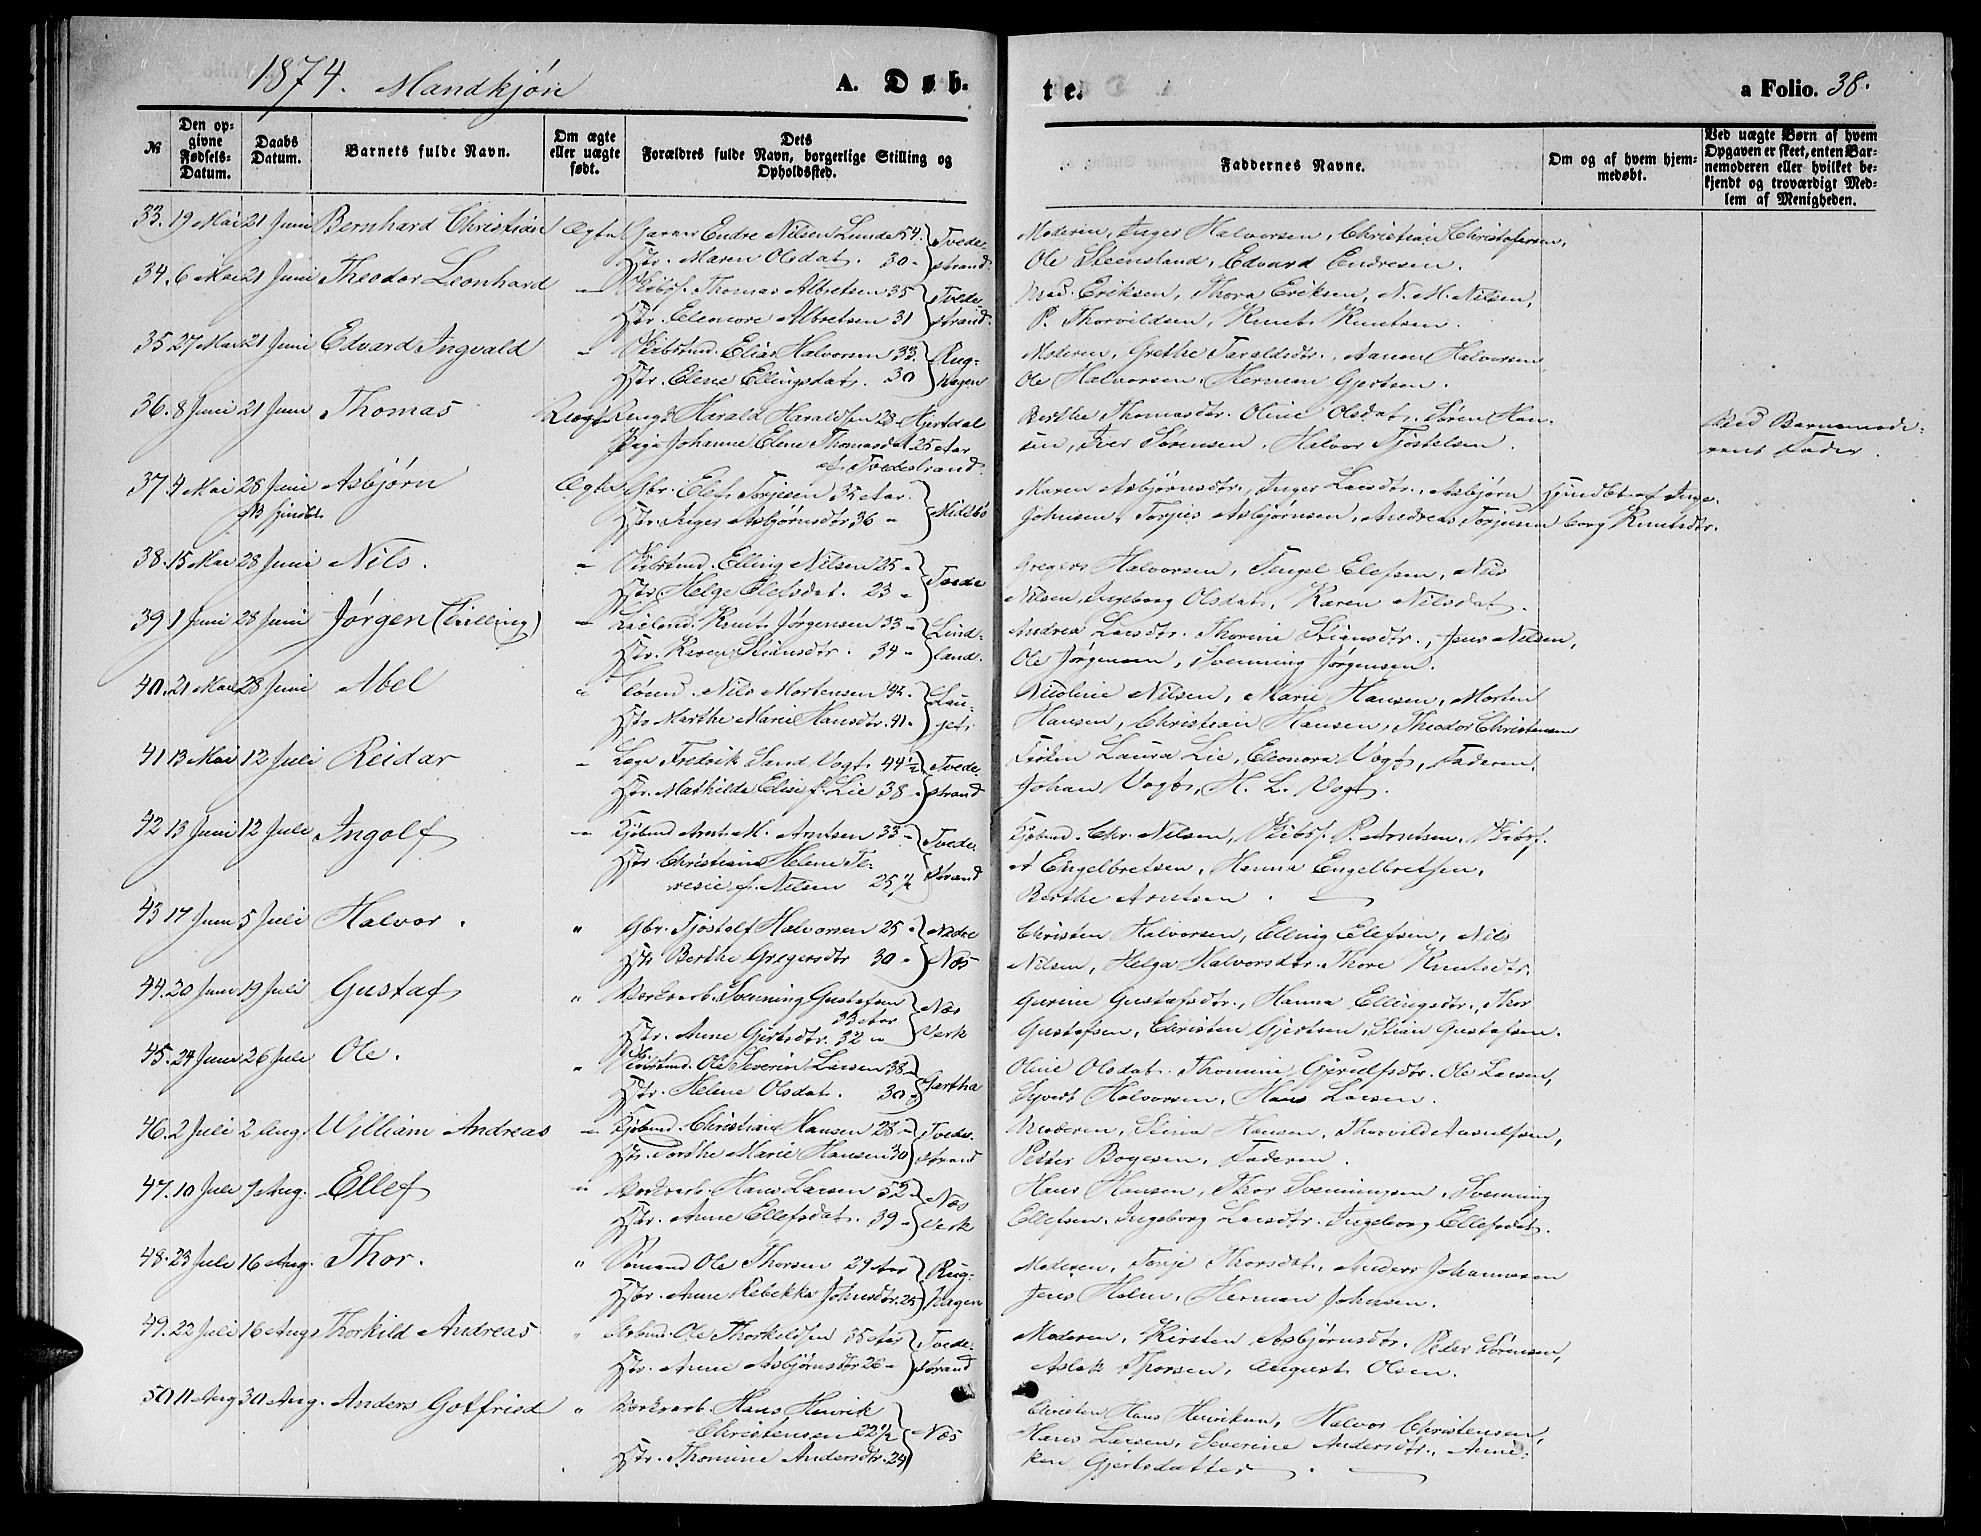 1874. Mandkjön
A. Døb-
te.
a Folio. 38.
№
Den op-
givne
Fødsels-
Datum.
Daabs
Datum.
Barnets fulde Navn.
Om ægte
eller uægte
født.
Dets
Forældres fulde Navn, borgerlige Stilling og
Opholdssted.
Faddernes Navne.
Om og af hvem hjem-
medøbt.
Ved uægte Børn af hvem
Opgaven er skeet, enten Bar-
nemoderen eller hvilket be-
kjendt og troværdigt Med-
lem af Menigheden.
33. 19 Mai 21 Juni Bernhard Christian Ægte Garver Endre Nilsen Lunde 54. Tvede-
Hstr. Maren Olsdat. 30 - strand.
Moderen, Inger Halvorsen, Christian Christofersen,
Ole Steensland, Edvard Endresen.
34. 6 Mai 21 Juni Theodor Leonhard - Skibsf. Thomas Albretsen 35 Tvede
Hstr. Eleonore Albretsen 31 strand.
Mad. Eriksen, Thora Eriksen, N. M. Nilsen,
P. Thorvildsen, Knut Knutsen.
35 27 Mai 21 Juni Edvard Ingvald - Skibstmd. Elias Halvorsen 33. Rug-
Hstr. Elene Ellingsdat. 30 hagen
Moderen, Grethe Taraldsdtr., Aanon Halvorsen
Ole Halvorsen, Herman Gjertsen.
36. 8 Juni 21 Juni Thomas Uægte Ungk. Harald Haraldsen 28 Hjertdal
Pige Johanne Elene Thomasdat 25 Aar
af Tvedestrand
Berthe Thomasdtr. Oline Olsdat. Søren Han-
sen, Iver Sørensen, Halvor Tjøstelsen.
Ved Barnemode-
rens Fader.
37. 4 Mai 28 Juni Asbjørn Ægte Gbr. Elef Torjesen 35 Aar.
NB hjmdbt. Hstr. Inger Asbjørnsdtr 36 - Midsbø
Maren Asbjørnsdtr., Inger Larsdtr., Asbjørn
Johnsen, Torjus Asbjørnsen, Andreas Torjusen
Hjmdbt. af Inge-
borg Knutsdtr.
38. 15 Mai 28 Juni Nils. - Skibstmd. Elling Nilsen 25 - Tvede
Hstr Helge Elefsdat. 23 -
Gregers Halvorsen, Tengel Elefsen, Nils
Nilsen, Ingeborg Olsdat, Karen Nilsdat.
39. 1 Juni 28 Juni Jørgen (Tvilling) - Knut Jørgensen 33 - Lind-
Hstr. Karen Stiansdtr. 34 - land.
Andrea Larsdtr. Thorine Stiansdtr., Jens Nilsen,
Ole Jørgensen, Svenning Jørgensen.
40. 21 Mai 28 Juni Abel " Tømd. Nils Mortensen 42. Lau-
Hstr Marthe Marie Hansdtr. 41 -
Nicoline Nilsen, Marie Hansen, Morten
Hansen, Christian Hansen, Theodor Christensen
41 13 Mai 12 Juli Reidar - Læge Fredrik Sand Vogt 44½ Tvede-
Hstr. Mathilde Elise f. Lie 38 - strand
Frøken Laura Lie, Eleonora Vogt, Faderen,
Johan Vogt, H. L. Vogt.
42 13 Juni 12 Juli Ingolf - Kjøbmd Arnt M. Arntsen 33 - Tvede-
Hstr Christiane Helene Te-
resie f. Nilsen 25½ strand
Kjøbmd. Chr. Nilsen, Skibsf. P. Arntsen, Skibsf.
A Engelbretsen, Hanna Engelbretsen,
Berthe Arntsen.
43 17 Juni 5 Juli Halvor. " Gbr. Tjøstolf Halvorsen 25 - Nedre
Hstr Berthe Gregersdtr 30 - Næs
Christen Halvorsen, Elling Elefsen, Nils
Nilsen, Helga Halvorsdtr. Thore Knutsdtr.
44. 20 Juni 19 Juli Gustaf " Værksarb. Svenning Gustafsen Næs
33 Aar
Hstr. Anne Gjertsdtr. 32 - Verk
Gurine Gustafsdtr., Hanna Ellingsdtr., Thor
Gustafsen, Christen Gjertsen, Stian Gustafsen.
45. 24 Juni 26 Juli Ole. " Skibstmd. Ole Severin Larsen 38 -
Hstr. Helene Olsdat. 30 - Gartha
Oline Olsdat. Thomine Gjerulfsdtr. Ole Larsen,
Syvert Halvorsen, Hans Larsen.
46. 2 Juli 2 Aug. William Andreas - Kjøbmd. Christian Hansen 28 - Tvede-
Hstr. Marie Hansen 30 strand
Moderen, Stina Hansen, Thorvild Aanulfsen,
Petter Bogesen, Faderen.
47. 10 Juli 9 Aug. Ellef " Værksarb. Hans Larsen 52 - Næs
Hstr. Anne Ellefsdat. 39 - Verk
Hans Hansen, Thor Svenningsen, Svenning
Ellefsen, Ingeborg Larsdtr. Ingeborg Ellefsdat.
48. 23 Juli 16 Aug. Thor. " Sømand Ole Thorsen 29 Aar Rug-
Hstr. Anne Rebekka Johnsdtr. 25 hagen
Moderen, Tonje Thorsdat., Anders Johannesen
Jens Holm, Herman Johnsen.
49. 22 Juli 16 Aug. Thorkild Andreas " Ole Thorkildsen 35 Aar Tvede-
Hstr. Anne Asbjørnsdtr 26 - strand
Moderen, Kirsten Asbjørnsdtr. Peder Sørensen,
Aslak Thorsen, August Olsen.
50 11 Aug 30 Aug. Anders Gotfried " Værksarb. Hans Henrik
Christensen 22½ Næs
Hstr. Thomine Andersdtr. 24
Christen Hans Henriksen, Halvor Christensen,
Hans Larsen, Severine Andersdtr., Anne-
ken Gjertsdatter.